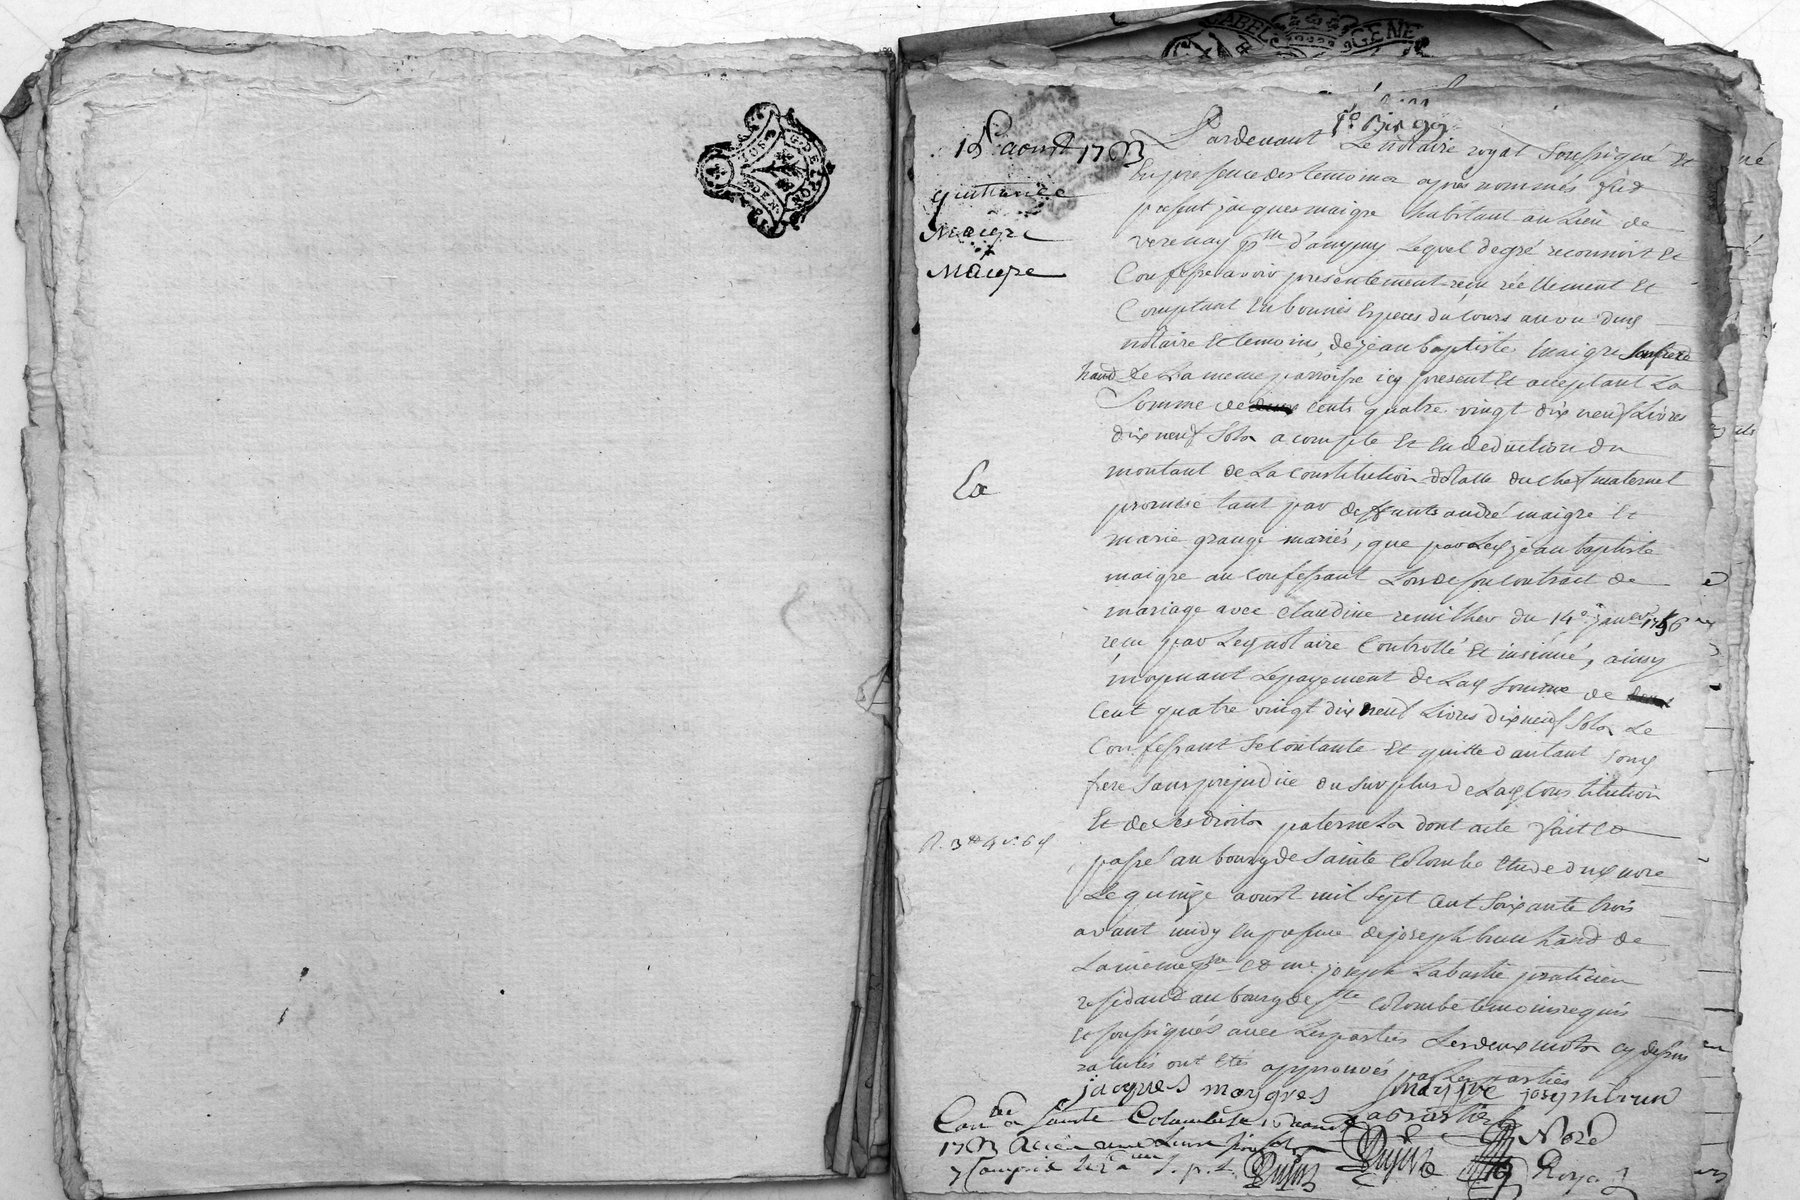 GABEL GENE
15e aoust 1763
quittance
Maigre
Maigre
Pardevant Le notaire royal soussigné Et
En presence des temoins apres nommés fut
present jacques maigre habitant au Lieu de
verenay psse d'ampuy Lequel de gré reconnoit Et
Confesse avoir presentement reçu réellement Et
Comptant En bonnes Especes du Cours au vu dud
notaire Et temoins, de jean baptiste maigre son frere
habitand de La meme parroisse icy present Et acceptant La
Somme de cents quatre vingt dix neuf Livres
dix neuf Sols a compte Et En deduction du
montant de La constitution dotalle du chef maternel
promise tant par deffunts andré maigre Et
marie grange mariés, que par Led jean baptiste
maigre au confessant Lors de son contract de
mariage avec claudine remilher du 14e janver 1756
recu par Led notaire Controllé Et insinué, ainsy
moyenant Le payement de Lad somme de
Cent quatre vingt dix neuf Livres dix neuf Sols Le
Confessant Se contante Et quitte d'autant Sond
frere Sans prejudice du surplus de Lad Constitution
Et de Ses droits paternels dont acte fait Et
passé au bourg de Sainte Colombe Etude dud nore
Le quinze aoust mil Sept Cent Soixante trois
avant midy En presence de joseph brun habitand de
La meme psse Et me joseph Labastie praticien
residant au bourg de Ste Colombe temoins requis
Et soussignés avec Les parties Les deux mots cy dessus
raturés ont Eté approuvés par Les parties
jacques maygres maygre joseph brun
Labastie
Conlé a Sainte Colombe Le 16 aoust
1763
Dujas Dujas Nore
Royal
Ex
R. 3tt 4s 6d